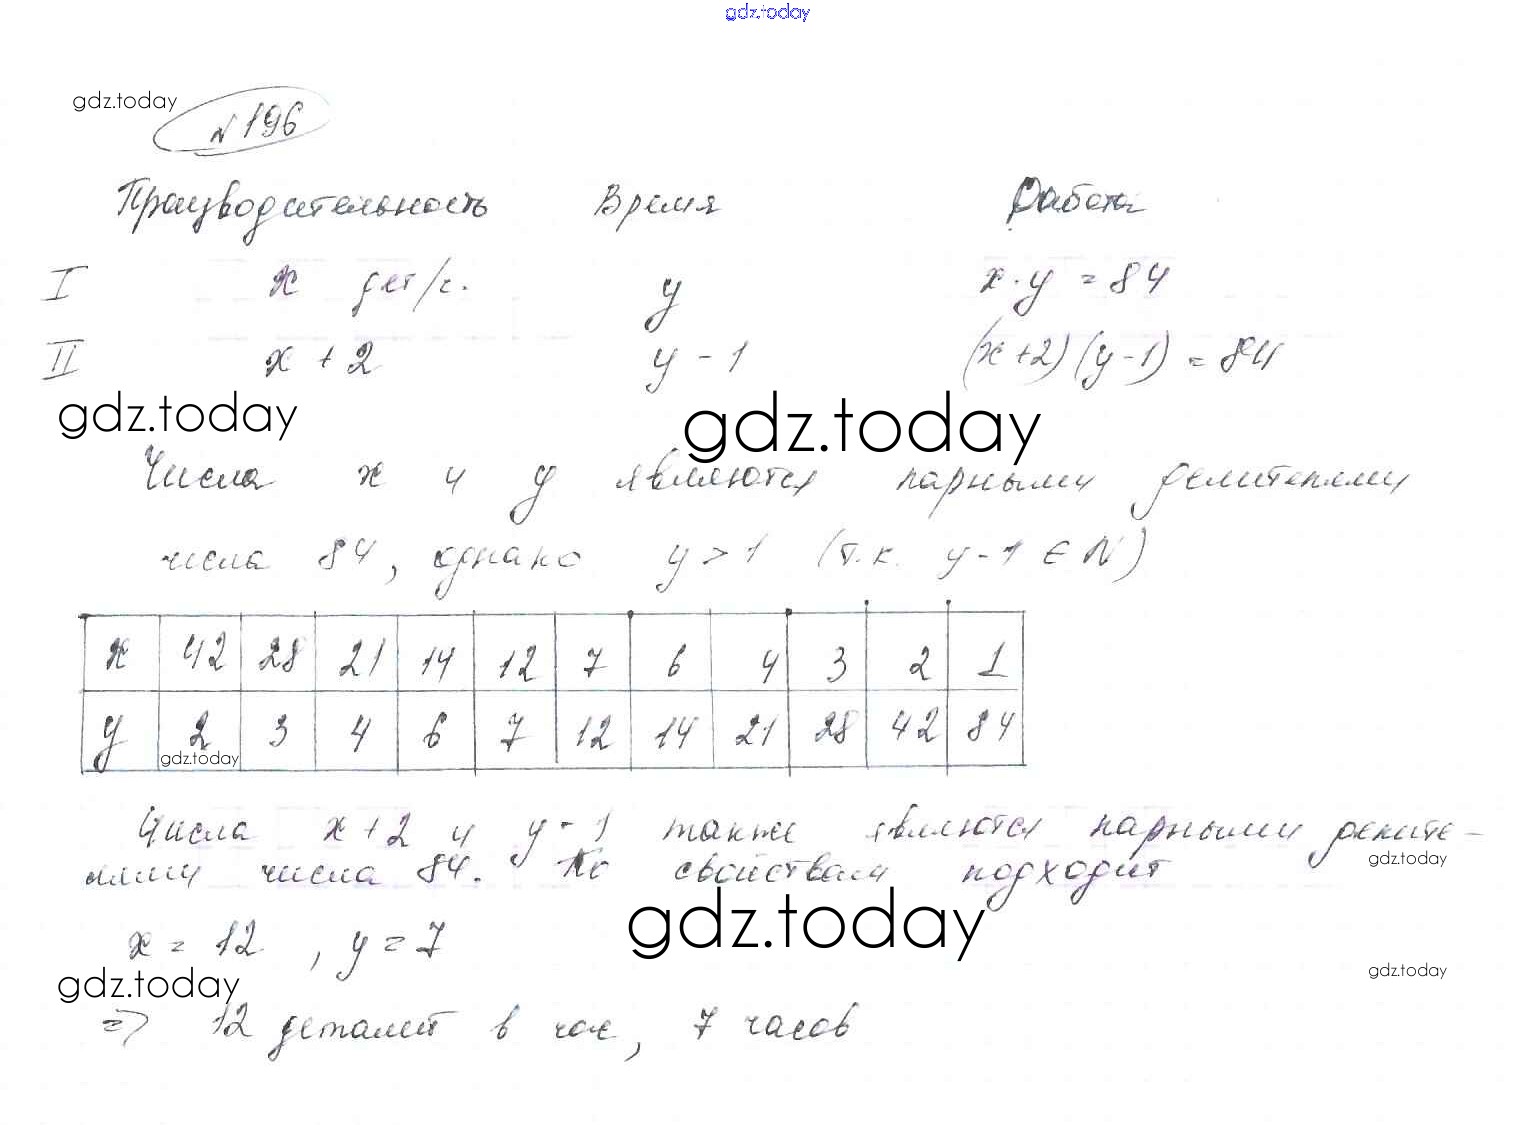 gdz.today
gdz.today
№196
Производительность Время Работа
I x дет/ч. y x·y = 84
II x + 2 y - 1 (x+2)(y-1) = 84
gdz.today gdz.today
Числа x и y являются парными делителями
числа 84, однако y > 1 (т.к. y-1 ∈ N)
x 42 28 21 14 12 7 6 4 3 2 1
y 2 3 4 6 7 12 14 21 28 42 84
gdz.today
Числа x+2 и y-1 также являются парными делите-
gdz.today
лями числа 84. По свойствам подходит
gdz.today
x = 12, y = 7
gdz.today gdz.today
=> 12 деталей в час, 7 часов